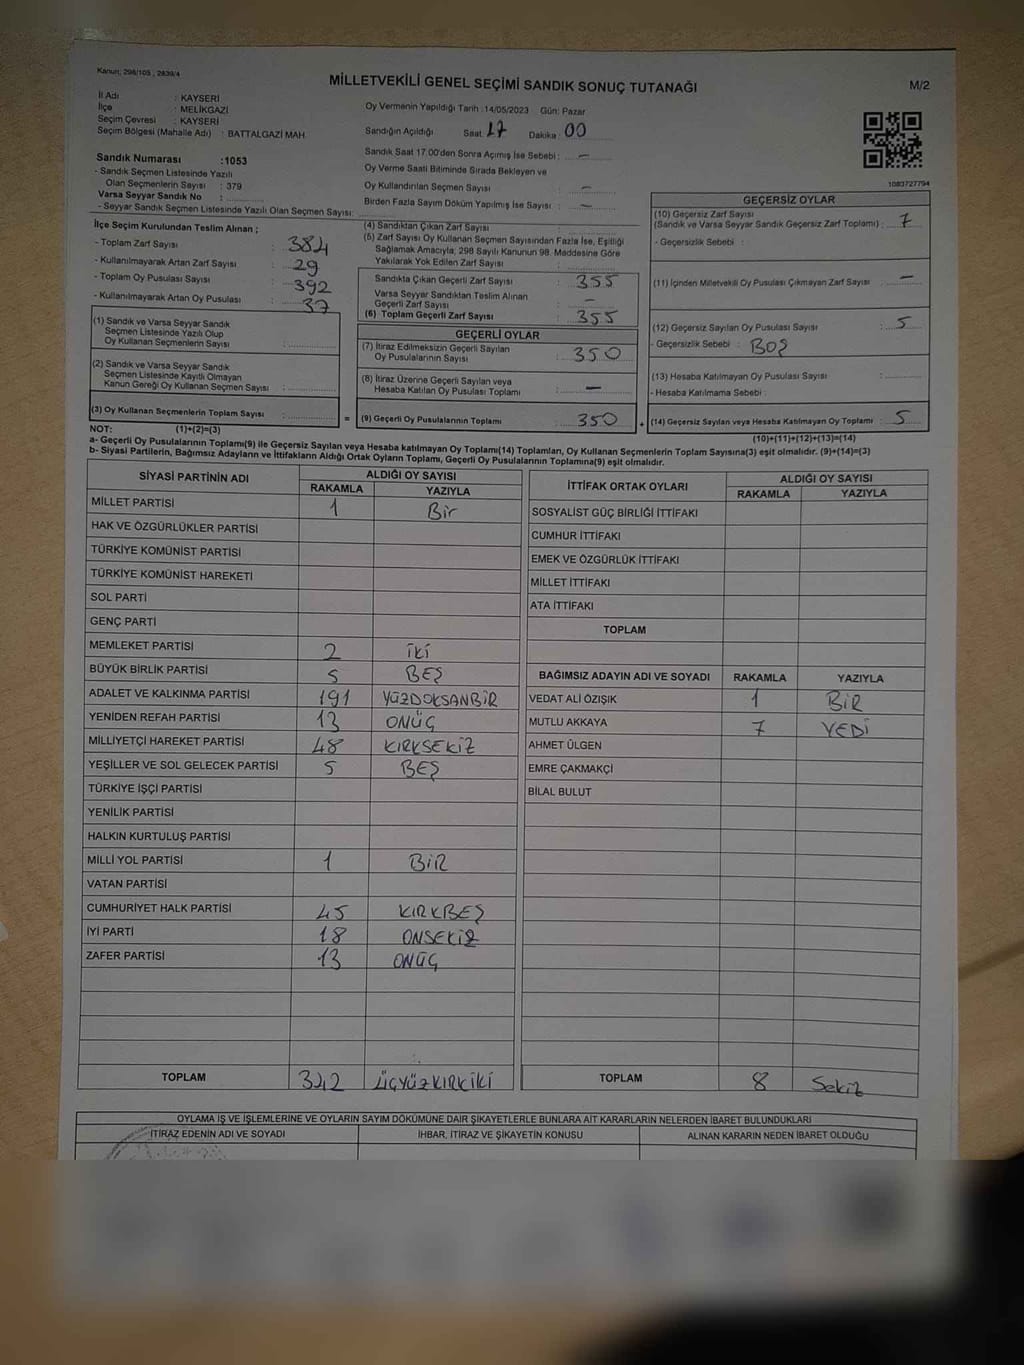 Kanun; 298/105 , 2839/4
MİLLETVEKİLİ GENEL SEÇİMİ SANDIK SONUÇ TUTANAĞI
M/2
İl Adı : KAYSERİ
İlçe : MELİKGAZİ
Seçim Çevresi : KAYSERİ
Seçim Bölgesi (Mahalle Adı) : BATTALGAZİ MAH.
Oy Vermenin Yapıldığı Tarih :14/05/2023 Gün: Pazar
Sandığın Açıldığı Saat: 17 Dakika: 00
Sandık Saat 17.00'den Sonra Açımış İse Sebebi : —
Oy Verme Saati Bitiminde Sırada Bekleyen ve
Oy Kullandırılan Seçmen Sayısı : —
Birden Fazla Sayım Döküm Yapılmış İse Sayısı : —
Sandık Numarası :1053
- Sandık Seçmen Listesinde Yazılı
Olan Seçmenlerin Sayısı : 379
Varsa Seyyar Sandık No :
- Seyyar Sandık Seçmen Listesinde Yazılı Olan Seçmen Sayısı:
1083727794
İlçe Seçim Kurulundan Teslim Alınan ;
- Toplam Zarf Sayısı : 384
- Kullanılmayarak Artan Zarf Sayısı : 29
- Toplam Oy Pusulası Sayısı : 392
- Kullanılmayarak Artan Oy Pusulası : 37
(1) Sandık ve Varsa Seyyar Sandık
Seçmen Listesinde Yazılı Olup
Oy Kullanan Seçmenlerin Sayısı :
(2) Sandık ve Varsa Seyyar Sandık
Seçmen Listesinde Kayıtlı Olmayan
Kanun Gereği Oy Kullanan Seçmen Sayısı :
(3) Oy Kullanan Seçmenlerin Toplam Sayısı : =
(4) Sandıktan Çıkan Zarf Sayısı :
(5) Zarf Sayısı Oy Kullanan Seçmen Sayısından Fazla İse, Eşitliği
Sağlamak Amacıyla, 298 Sayılı Kanunun 98. Maddesine Göre
Yakılarak Yok Edilen Zarf Sayısı :
Sandıkta Çıkan Geçerli Zarf Sayısı : 355
Varsa Seyyar Sandıktan Teslim Alınan
Geçerli Zarf Sayısı : —
(6) Toplam Geçerli Zarf Sayısı : 355
GEÇERLİ OYLAR
(7) İtiraz Edilmeksizin Geçerli Sayılan
Oy Pusulalarının Sayısı : 350
(8) İtiraz Üzerine Geçerli Sayılan veya
Hesaba Katılan Oy Pusulası Toplamı : —
(9) Geçerli Oy Pusulalarının Toplamı : 350 +
GEÇERSİZ OYLAR
(10) Geçersiz Zarf Sayısı
(Sandık ve Varsa Seyyar Sandık Geçersiz Zarf Toplamı) : 7
- Geçersizlik Sebebi :
(11) İçinden Milletvekili Oy Pusulası Çıkmayan Zarf Sayısı : —
(12) Geçersiz Sayılan Oy Pusulası Sayısı : 5
- Geçersizlik Sebebi : BOŞ
(13) Hesaba Katılmayan Oy Pusulası Sayısı :
- Hesaba Katılmama Sebebi :
(14) Geçersiz Sayılan veya Hesaba Katılmayan Oy Toplamı : 5
NOT: (1)+(2)=(3)
(10)+(11)+(12)+(13)=(14)
a- Geçerli Oy Pusulalarının Toplamı(9) ile Geçersiz Sayılan veya Hesaba katılmayan Oy Toplamı(14) Toplamları, Oy Kullanan Seçmenlerin Toplam Sayısına(3) eşit olmalıdır. (9)+(14)=(3)
b- Siyasi Partilerin, Bağımsız Adayların ve İttifakların Aldığı Oy Sayısı, Ortak Oyların Toplamı, Geçerli Oy Pusulalarının Toplamına(9) eşit olmalıdır.
SİYASİ PARTİNİN ADI ALDIĞI OY SAYISI
RAKAMLA YAZIYLA
MİLLET PARTİSİ 1 Bir
HAK VE ÖZGÜRLÜKLER PARTİSİ
TÜRKİYE KOMÜNİST PARTİSİ
TÜRKİYE KOMÜNİST HAREKETİ
SOL PARTİ
GENÇ PARTİ
MEMLEKET PARTİSİ 2 İKİ
BÜYÜK BİRLİK PARTİSİ 5 BEŞ
ADALET VE KALKINMA PARTİSİ 191 YÜZDOKSANBİR
YENİDEN REFAH PARTİSİ 13 ONÜÇ
MİLLİYETÇİ HAREKET PARTİSİ 48 KIRKSEKİZ
YEŞİLLER VE SOL GELECEK PARTİSİ 5 BEŞ
TÜRKİYE İŞÇİ PARTİSİ
YENİLİK PARTİSİ
HALKIN KURTULUŞ PARTİSİ
MİLLİ YOL PARTİSİ 1 BİR
VATAN PARTİSİ
CUMHURİYET HALK PARTİSİ 45 KIRKBEŞ
İYİ PARTİ 18 ONSEKİZ
ZAFER PARTİSİ 13 ONÜÇ
TOPLAM 342 ÜÇYÜZKIRKİKİ
İTTİFAK ORTAK OYLARI ALDIĞI OY SAYISI
RAKAMLA YAZIYLA
SOSYALİST GÜÇ BİRLİĞİ İTTİFAKI
CUMHUR İTTİFAKI
EMEK VE ÖZGÜRLÜK İTTİFAKI
MİLLET İTTİFAKI
ATA İTTİFAKI
TOPLAM
BAĞIMSIZ ADAYIN ADI VE SOYADI RAKAMLA YAZIYLA
VEDAT ALİ ÖZIŞIK 1 BİR
MUTLU AKKAYA 7 YEDİ
AHMET ÜLGEN
EMRE ÇAKMAKÇİ
BİLAL BULUT
TOPLAM 8 Sekiz
OYLAMA İŞ VE İŞLEMLERİNE VE OYLARIN SAYIM DÖKÜMÜNE DAİR ŞİKAYETLERLE BUNLARA AİT KARARLARIN NELERDEN İBARET BULUNDUKLARI
İTİRAZ EDENİN ADI VE SOYADI İHBAR, İTİRAZ VE ŞİKAYETİN KONUSU ALINAN KARARIN NEDEN İBARET OLDUĞU